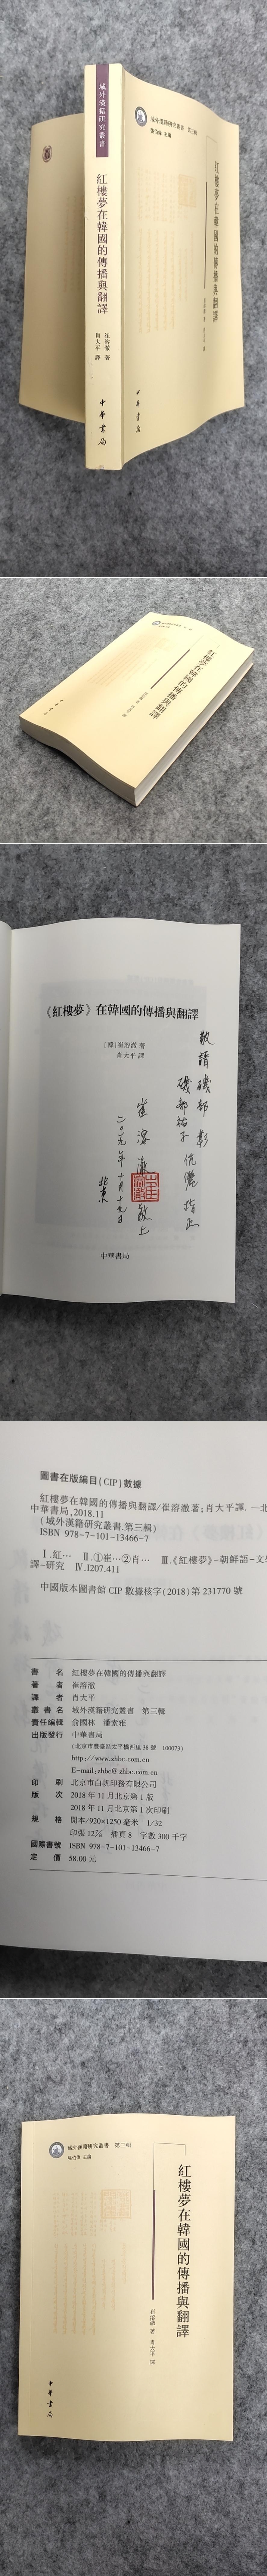 域外漢籍研究叢書
紅樓夢在韓國的傳播與翻譯
崔溶澈 著
肖大平 譯
中華書局
域外漢籍研究叢書 第三輯
張伯偉 主編
紅樓夢在韓國的傳播與翻譯
崔溶澈 著 肖大平 譯
中華書局
紅樓夢在韓國的傳播與翻譯
《紅樓夢》在韓國的傳播與翻譯
[韓]崔溶澈 著
肖大平 譯
敬請
磯部彰
磯部祐子 伉儷指正
崔溶澈 敬上
二〇一九年十月十九日
北京
中華書局
圖書在版編目(CIP)數據
紅樓夢在韓國的傳播與翻譯/崔溶澈著;肖大平譯. —北
中華書局,2018.11
(域外漢籍研究叢書.第三輯)
ISBN 978-7-101-13466-7
Ⅰ.紅… Ⅱ.①崔…②肖… Ⅲ.《紅樓夢》-朝鮮語-文學
譯-研究 Ⅳ.I207.411
中國版本圖書館 CIP 數據核字(2018)第 231770 號
書名 紅樓夢在韓國的傳播與翻譯
著者 崔溶澈
譯者 肖大平
叢書名 域外漢籍研究叢書 第三輯
責任編輯 俞國林 潘素雅
出版發行 中華書局
(北京市豐臺區太平橋西里 38 號 100073)
http://www.zhbc.com.cn
E-mail:zhbc@zhbc.com.cn
印刷 北京市白帆印務有限公司
版次 2018 年 11 月北京第 1 版
2018 年 11 月北京第 1 次印刷
規格 開本/920×1250 毫米 1/32
印張 12⅞ 插頁 8 字數 300 千字
國際書號 ISBN 978-7-101-13466-7
定價 58.00 元
域外漢籍研究叢書 第三輯
張伯偉 主編
紅樓夢在韓國的傳播與翻譯
崔溶澈 著 肖大平 譯
中華書局